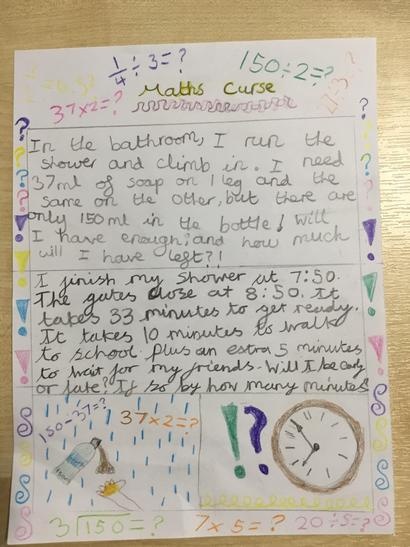 1/4 ÷ 3 = ?
150 ÷ 2 = ?
37 x 2 = ?
Maths Curse
In the bathroom, I run the
shower and climb in. I need
37ml of soap on 1 leg and the
same on the other, but there are
only 150 ml in the bottle! Will
I have enough, and how much
will I have left?!
I finish my shower at 7:50.
The gates close at 8:50. It
takes 33 minutes to get ready.
It takes 10 minutes to walk
to school plus an extra 5 minutes
to wait for my friends. Will I be early
or late? If so by how many minutes?
150-37=?
37 x 2 = ?
!?
3√150 = ?
7 x 5 = ?
20 ÷ 5 = ?